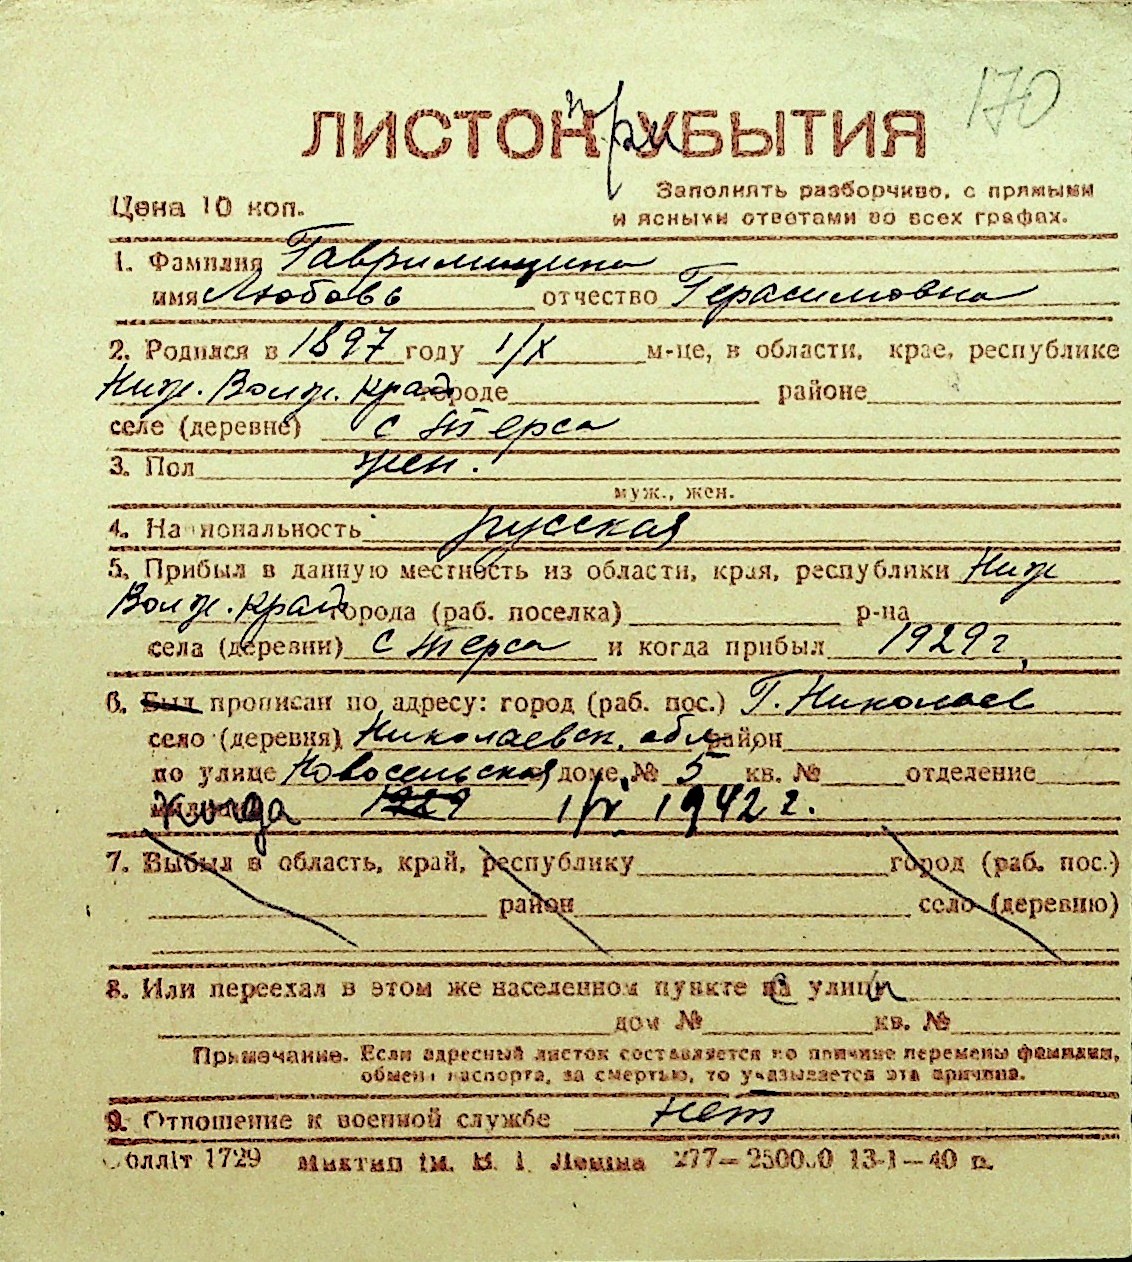 170
ЛИСТОК при УБЫТИЯ
Цена 10 коп.
Заполнять разборчиво, с прямыми
и ясными ответами во всех графах.
1. Фамилия Гавримищина
имя Любовь отчество Герасимовна
2. Родился в 1897 году 1/X м-це, в области, крае, республике
Ниж. Волж. край городе районе
селе (деревне) с Терса
3. Пол жен.
муж., жен.
4. Национальность русская
5. Прибыл в данную местность из области, края, республики Ниж
Волж. край города (раб. поселка) р-на
села (деревни) с Терса и когда прибыл 1929 г.
6. Был прописан по адресу: город (раб. пос.) Г. Николаев
село (деревня) Николаевск. обл. район
по улице Новосельская доме № 5 кв. № отделение
Когда 1929 1942 г.
7. Выбыл в область, край, республику город (раб. пос.)
район село (деревню)
8. Или переехал в этом же населенном пункте на улицу
дом № кв. №
Примечание. Если адресный листок составляется по причине перемены фамилии,
обмена паспорта, за смертью, то указывается эта причина.
9. Отношение к военной службе нет
Облліт 1729 Миктип ім. В. І. Леніна 277— 13-1—40 р.